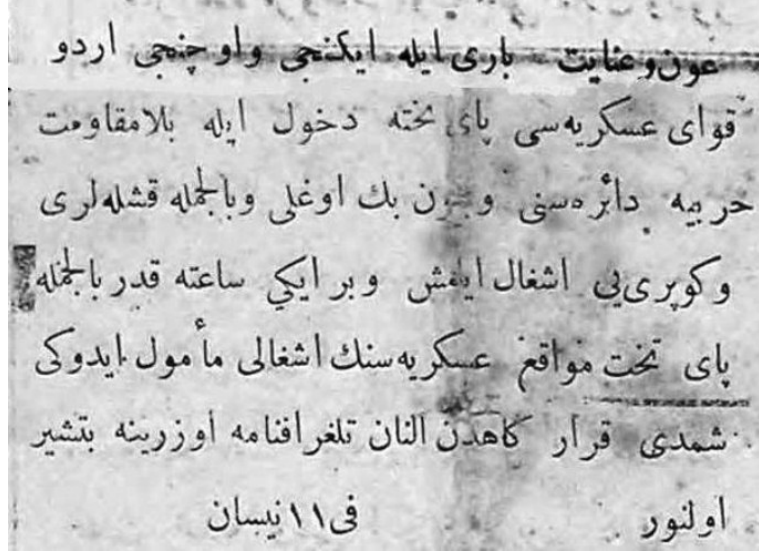 عون وعنايت بارى ايله ايكنجى واوچنجى اردو
قواى عسكريه‌سى پاى تخته دخول ايله بلامقاومت
حربيه دائره‌سنى وبتون بك اوغلى وبالجمله قشله‌لرى
وكوپرى‌يى اشغال ايلمش وبر ايكي ساعته قدر بالجمله
پاى تخت مواقع عسكريه‌سنك اشغالى مأمول ايدوكى
شمدى قرار كاهدن النان تلغرافنامه اوزرينه بتشير
اولنور فى ١١ نيسان